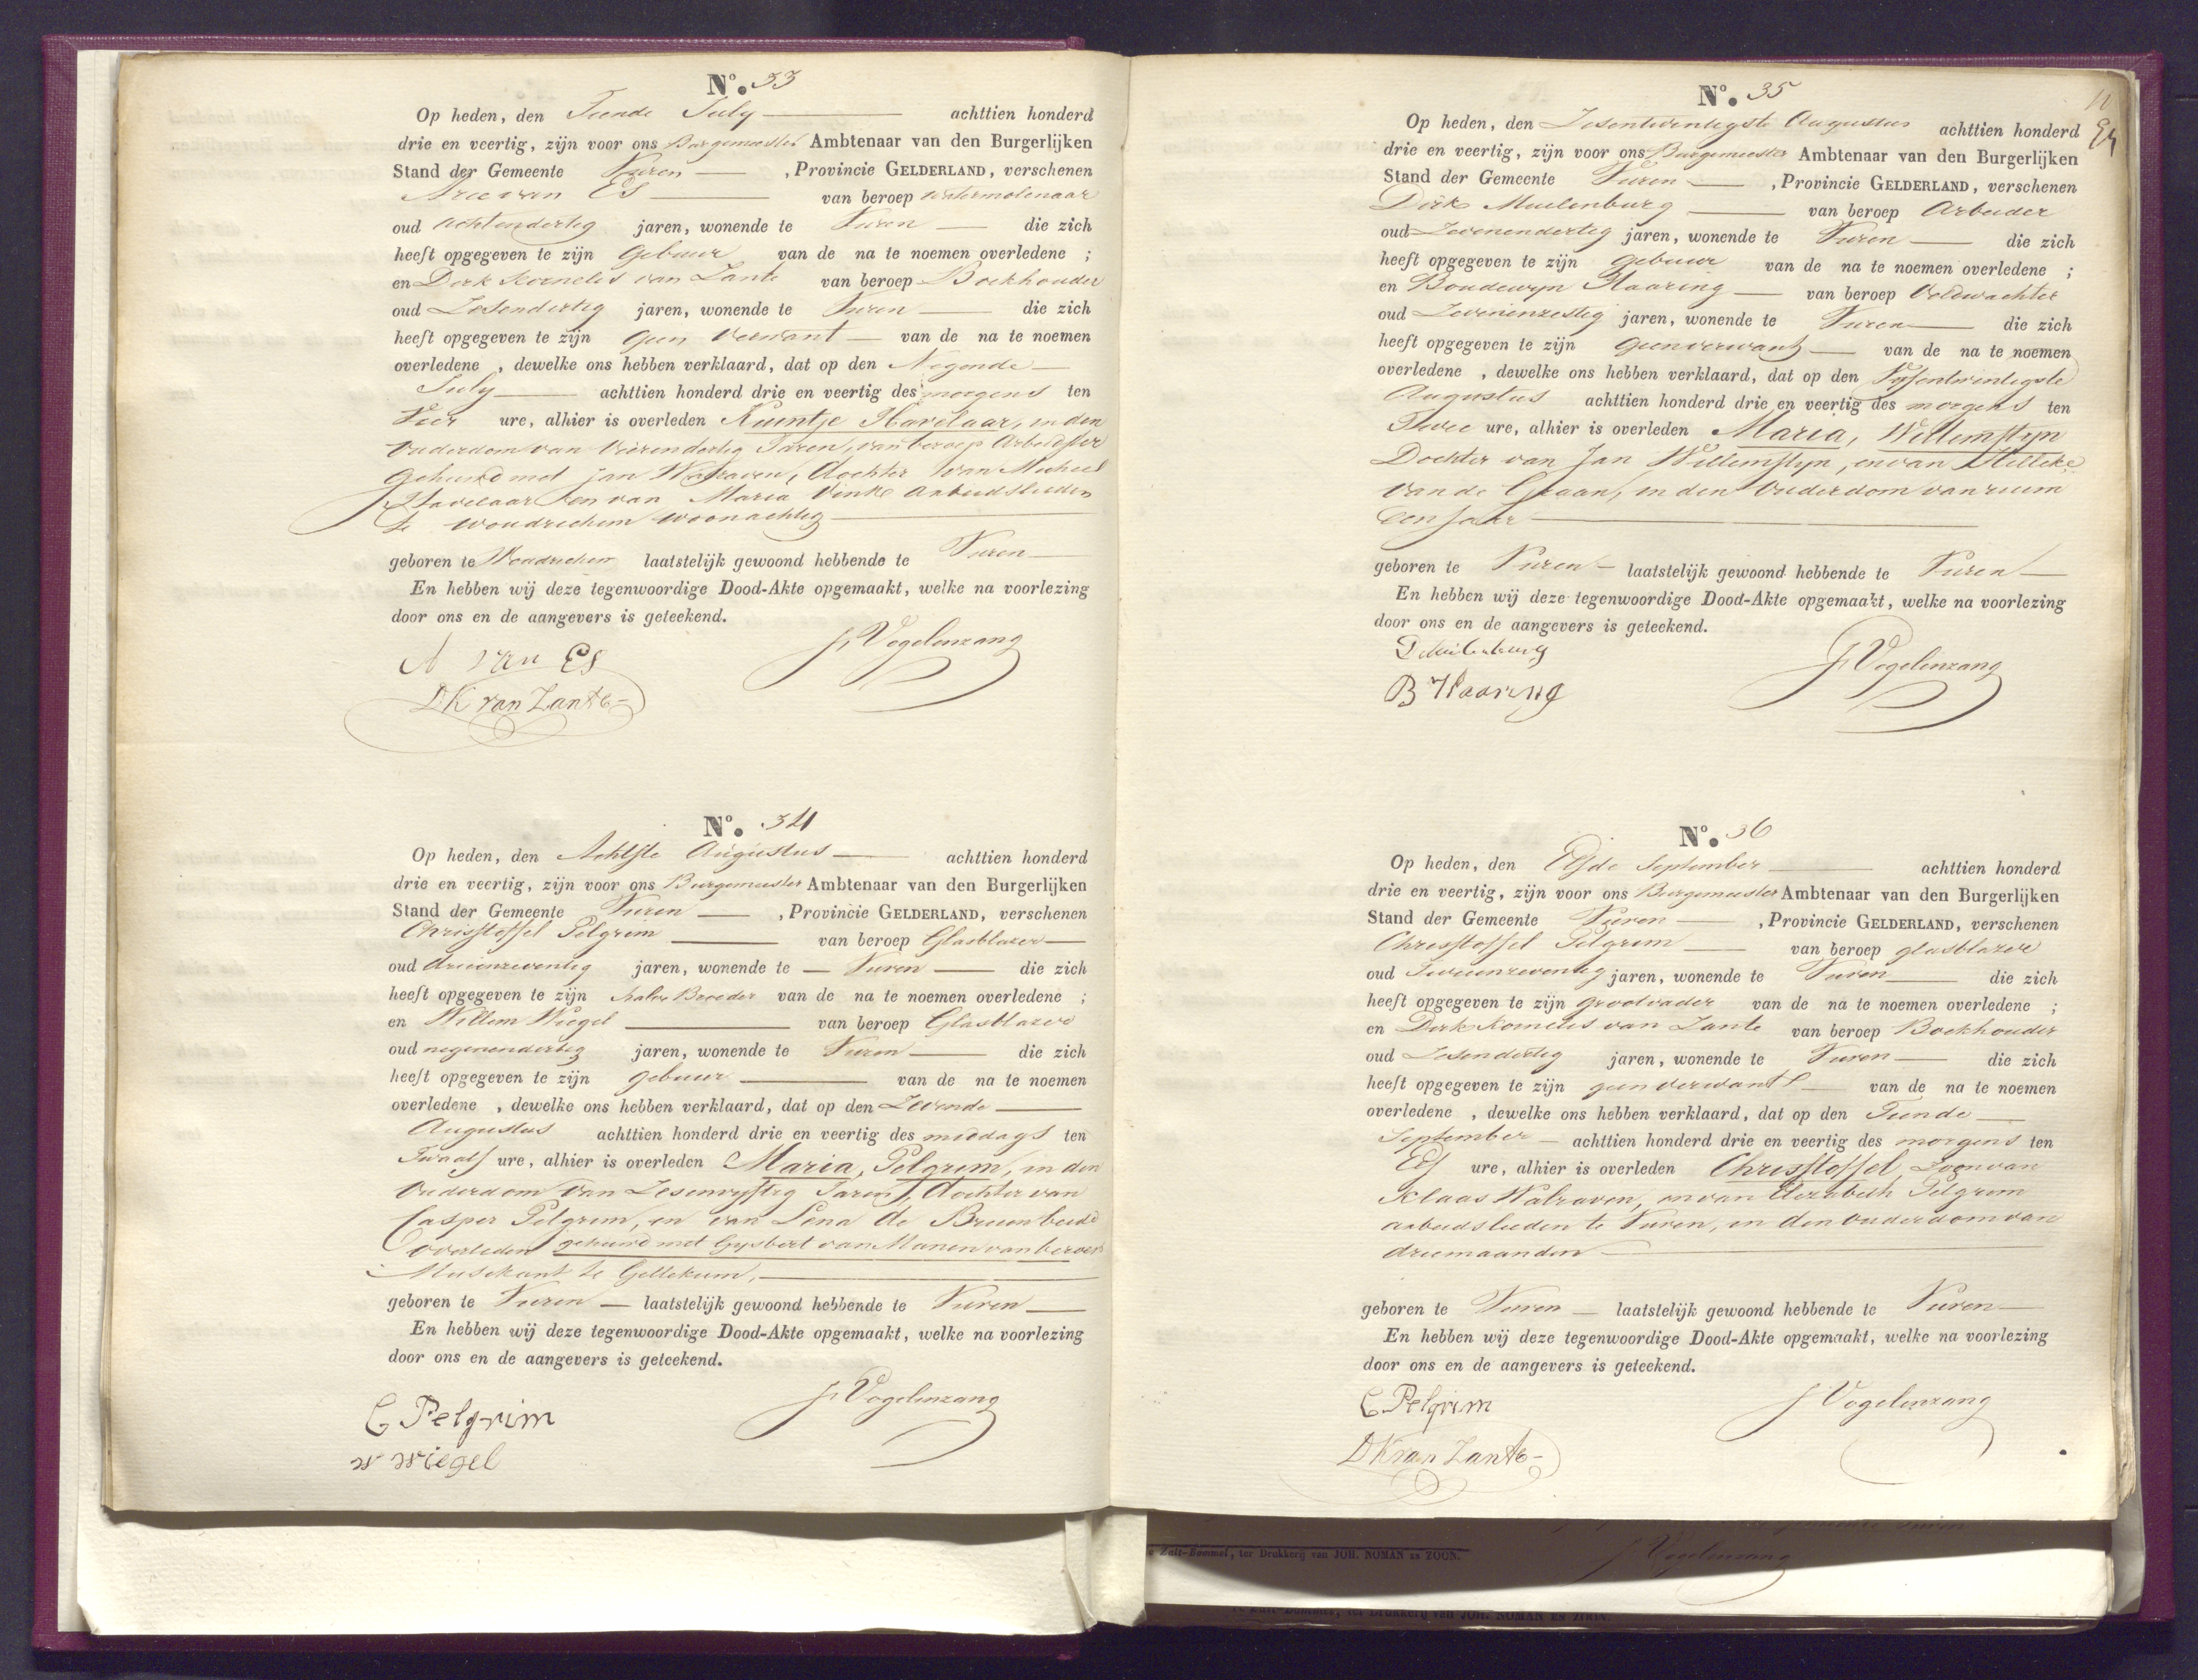 No. 33
Op heden, den Tiende July achttien honderd
drie en veertig, zijn voor ons Burgemeester Ambtenaar van den Burgerlijken
Stand der Gemeente Vuren , Provincie GELDERLAND, verschenen
Arie van Es van beroep watermolenaar
oud achtendertig jaren, wonende te Vuren die zich
heeft opgegeven te zijn Gebuur van de na te noemen overledene ;
en Dirk Kornelis van Zante van beroep Boekhouder
oud Zesendertig jaren, wonende te Vuren die zich
heeft opgegeven te zijn geen Verwant van de na te noemen
overledene , dewelke ons hebben verklaard, dat op den Negende
July achttien honderd drie en veertig des morgens ten
Vier ure, alhier is overleden Kuintje Havelaar, in den
Ouderdom van Vierendertig Jaren, van beroep Arbeidster
Gehuwd met Jan Walraven, dochter van Michiel
Havelaar en van Maria Vink Arbeidslieden
te Woudrichem woonachtig
geboren te Woudrichem laatstelijk gewoond hebbende te Vuren
En hebben wij deze tegenwoordige Dood-Akte opgemaakt, welke na voorlezing
door ons en de aangevers is geteekend.
A van Es J Vogelenzang
DK van Zante
No. 34
Op heden, den Achtste Augustus achttien honderd
drie en veertig, zijn voor ons Burgemeester Ambtenaar van den Burgerlijken
Stand der Gemeente Vuren , Provincie GELDERLAND, verschenen
Christoffel Pelgrim van beroep Glasblazer
oud drieenzeventig jaren, wonende te Vuren die zich
heeft opgegeven te zijn halve Broeder van de na te noemen overledene ;
en Willem Wiegel van beroep Glasblazer
oud negenendertig jaren, wonende te Vuren die zich
heeft opgegeven te zijn gebuur van de na te noemen
overledene , dewelke ons hebben verklaard, dat op den Zevende
Augustus achttien honderd drie en veertig des middags ten
Twaalf ure, alhier is overleden Maria, Pelgrim, in den
Ouderdom van Zesenvyftig Jaren, dochter van
Casper Pelgrim, en van Lena de Bruin beide
overleden gehuwd met Gysbert van Manen van beroep
Musikant te Gellekum,
geboren te Vuren laatstelijk gewoond hebbende te Vuren
En hebben wij deze tegenwoordige Dood-Akte opgemaakt, welke na voorlezing
door ons en de aangevers is geteekend.
C Pelgrim J Vogelenzang
w wiegel
No. 35
Op heden, den Zesentwentigste Augustus achttien honderd
drie en veertig, zijn voor ons Burgemeester Ambtenaar van den Burgerlijken
Stand der Gemeente Vuren , Provincie GELDERLAND, verschenen
Dirk Muilenburg van beroep Arbeider
oud Zevenendertig jaren, wonende te Vuren die zich
heeft opgegeven te zijn gebuur van de na te noemen overledene ;
en Boudewyn Haaring van beroep Veldwachter
oud Zevenenzestig jaren, wonende te Vuren die zich
heeft opgegeven te zijn geen verwant van de na te noemen
overledene , dewelke ons hebben verklaard, dat op den Vyfentwintigste
Augustus achttien honderd drie en veertig des morgens ten
Twee ure, alhier is overleden Maria, Willemstyn
Dochter van Jan Willemstyn, en van Hilleke
van de Graan, in den Ouderdom van ruim
Een Jaar
geboren te Vuren laatstelijk gewoond hebbende te Vuren
En hebben wij deze tegenwoordige Dood-Akte opgemaakt, welke na voorlezing
door ons en de aangevers is geteekend.
D Muilenburg J Vogelenzang
B Haaring
No. 36
Op heden, den Elfde September achttien honderd
drie en veertig, zijn voor ons Burgemeester Ambtenaar van den Burgerlijken
Stand der Gemeente Vuren , Provincie GELDERLAND, verschenen
Christoffel Pelgrim van beroep glasblazer
oud Tweeenzeventig jaren, wonende te Vuren die zich
heeft opgegeven te zijn grootvader van de na te noemen overledene ;
en Dirk Kornelis van Zante van beroep Boekhouder
oud Zesendertig jaren, wonende te Vuren die zich
heeft opgegeven te zijn geen verwant van de na te noemen
overledene , dewelke ons hebben verklaard, dat op den Tiende
September achttien honderd drie en veertig des morgens ten
Elf ure, alhier is overleden Christoffel, Zoon van
Klaas Walraven, en van Elizabeth Pelgrim
arbeidslieden te Vuren, in den ouderdom van
driemaanden
geboren te Vuren laatstelijk gewoond hebbende te Vuren
En hebben wij deze tegenwoordige Dood-Akte opgemaakt, welke na voorlezing
door ons en de aangevers is geteekend.
C Pelgrim J Vogelenzang
DK van Zante
Zalt-Bommel, ter Drukkerij van JOH. NOMAN EN ZOON.
J Vogelenzang